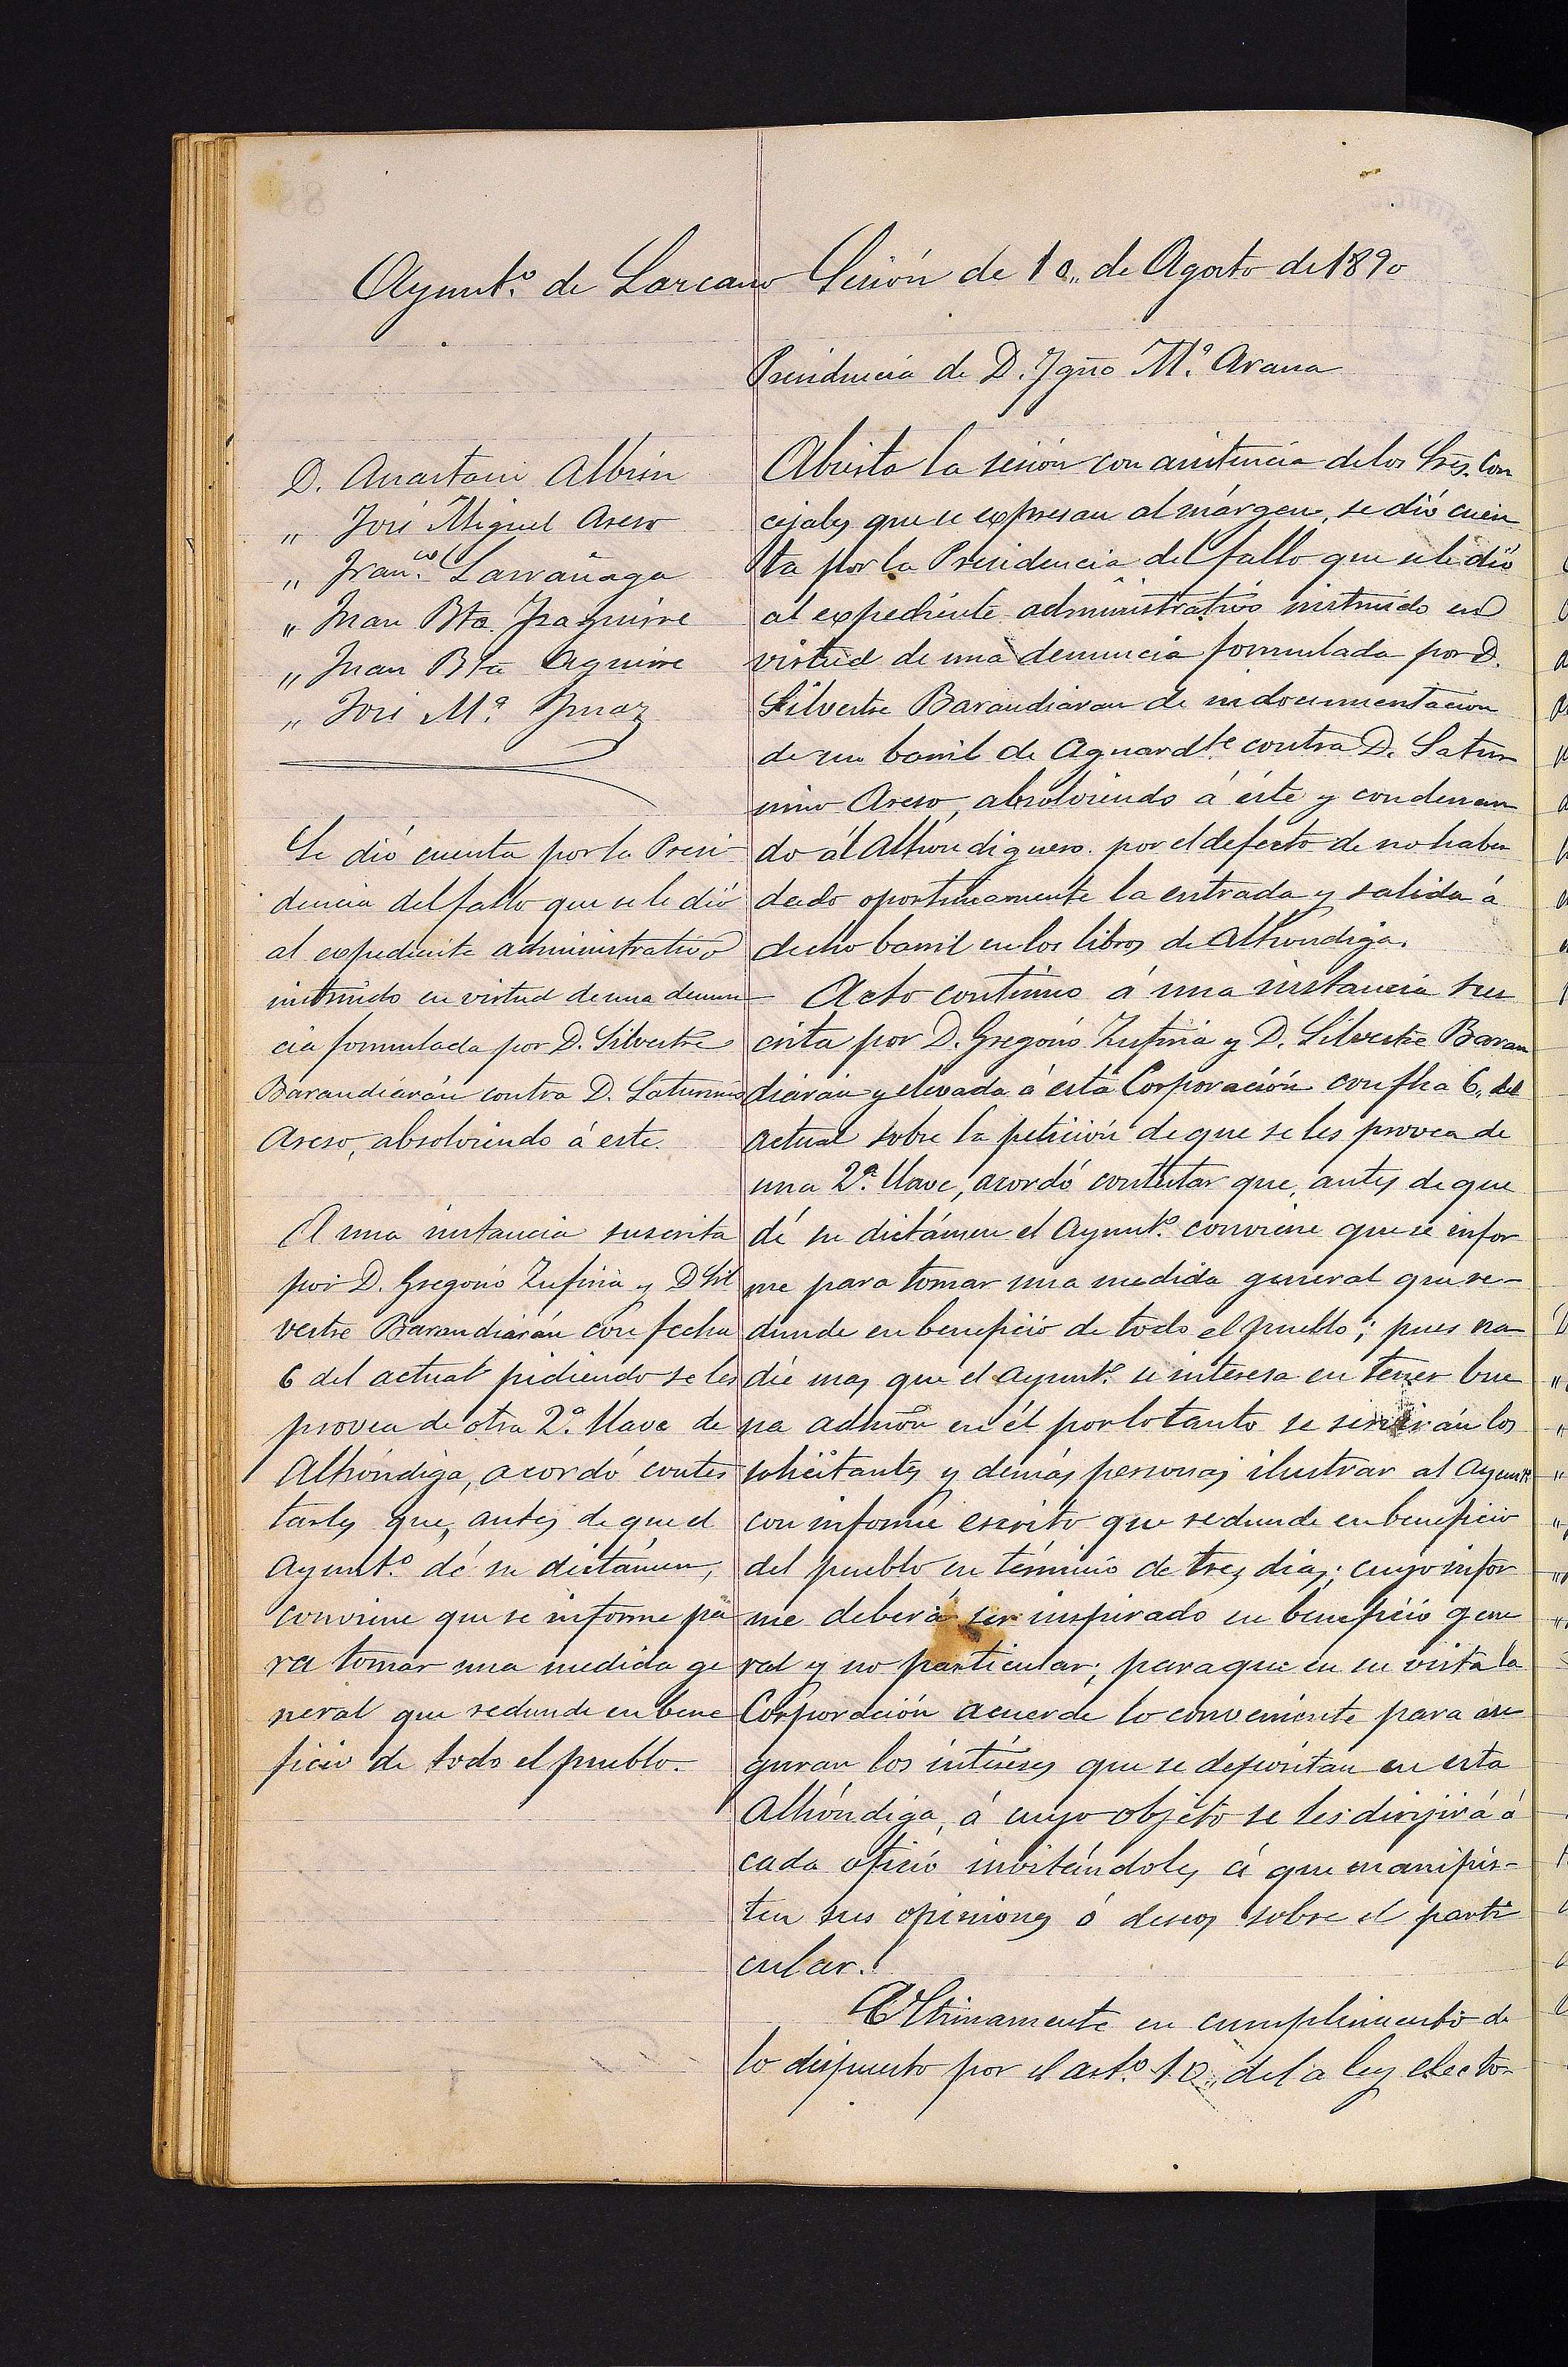 Ayunt.º de Lazcano Sesión de 10,, de Agosto de 1890
Presidencia de D. Ygnº M.ª Arana
D. Anastasio Albisu
„ José Miguel Areso
„ Fran.co Larrañaga
„ Juan Bta Izaguirre
„ Juan Bta Aguirre
„ José M.ª Ymaz
Se dió cuenta por la Presi
dencia del fallo que se le dió
al expediente administrativo
instruido en virtud de una denun
cia formulada por D. Silvestre
Barandiarán contra D. Saturnino
Areso, absolviendo á este.
A una instancia suscrita
por D. Gregorio Zufiria y D Sil
vestre Barandiarán con fecha
6 del actual pidiendo se les
provea de otra 2.ª llave de
Alhóndiga, acordó contes
tarles que, antes de que el
Ayunt.º dé su dictámen,
conviene que se informe pa
ra tomar una medida ge
neral que redunde en bene
ficio de todo el pueblo.
Abierta la sesión con asistencia de los Sres. Con
cejales que se expresan al márgen, se dió cuen
ta por la Presidencia del fallo que se le dió
al expediente administrativo instruido en
virtud de una denuncia formulada por D.
Silvestre Barandiaran de indocumentacion
de un barril de Aguard.te contra D. Satur
nino Areso, absolviendo á éste y condenan
do al Alhondiguero por el defecto de no haber
dado oportunamente la entrada y salida á
dicho barril en los libros de Alhondiga.
Acto contínuo á una instancia sus
crita por D. Gregorio Zufiria y D. Silvestre Baran
diaran y elevada á esta Corporación con fha 6, del
actual sobre la petición de que se les provea de
una 2.ª llave, acordó contestar que, antes de que
dé su dictámen el Ayunt.º conviene que se infor
me para tomar una medida general que re-
dunde en beneficio de todo el pueblo; pues na
die mas que el Ayunt.º se interesa en tener bue
na admón en él por lo tanto se servirán los
solicitantes y demás personas ilustrar al Ayuntº
con informe escrito que redunde en beneficio
del pueblo en término de tres dias; cuyo infor
me deberá ser inspirado en beneficio gene
ral y no particular; para que en su vista la
Corporación acuerde lo conveniente para ase
guran los intéreses que se depositan en esta
Alhóndiga, á cuyo objeto se les dirijirá á
cada oficio invitándoles á que manifies-
ten sus opiniones ó deseos sobre el parti
cular.
Ultimamente en cumplimiento de
lo dispuesto por el art.º 10,, de la ley elector